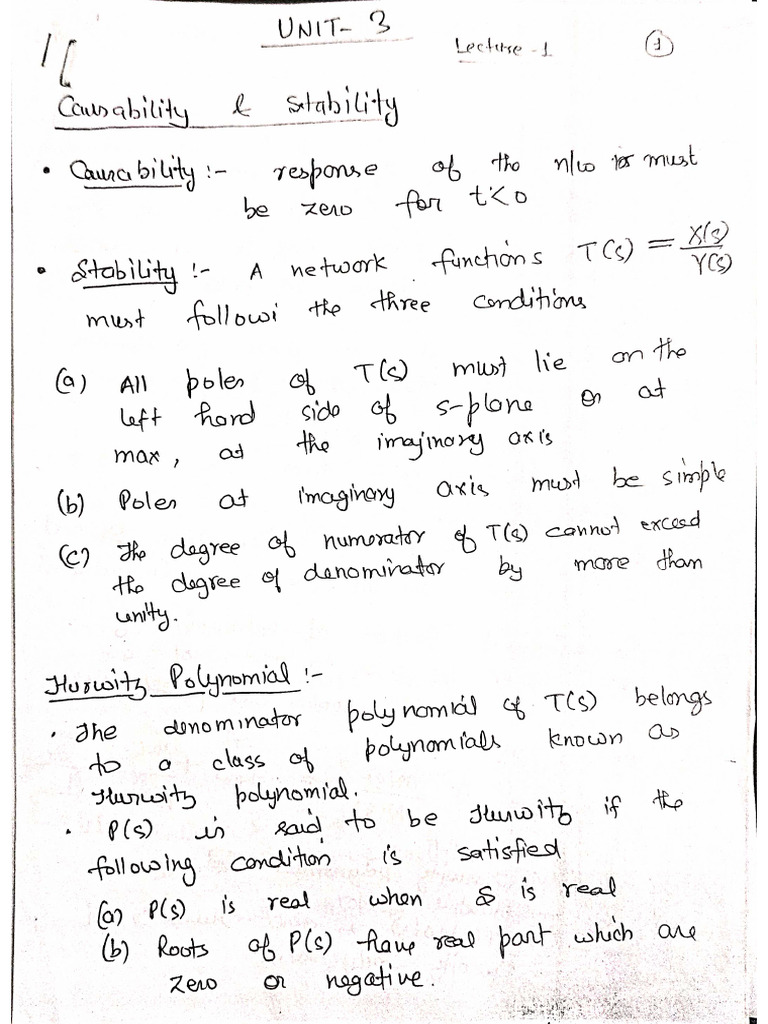 UNIT- 3
Lecture -1
1
Causability & Stability
• Causability :- response of the n/w must
be zero for t<0
• Stability :- A network functions T(s) = X(s)/Y(s)
must followi the three conditions
(a) All poles of T(s) must lie on the
left hand side of s-plane or at
max, at the imajinary axis
(b) Poles at imaginary axis must be simple
(c) The degree of numerator of T(s) cannot exceed
the degree of denominator by more than
unity.
Hurwitz Polynomial :-
• The denominator polynomial of T(s) belongs
to a class of polynomials known as
Hurwitz polynomial.
• P(s) is said to be Hurwitz if the
following condition is satisfied
(a) P(s) is real when s is real
(b) Roots of P(s) have real part which are
zero or negative.